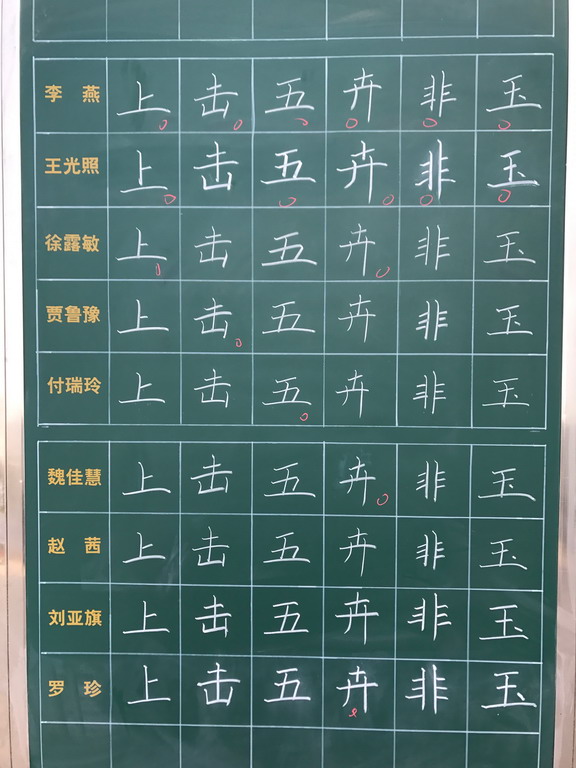 李 燕 上 击 五 卉 非 玉
王光照 上 击 五 卉 非 玉
徐露敏 上 击 五 卉 非 玉
贾鲁豫 上 击 五 卉 非 玉
付瑞玲 上 击 五 卉 非 玉
魏佳慧 上 击 五 卉 非 玉
赵 茜 上 击 五 卉 非 玉
刘亚旗 上 击 五 卉 非 玉
罗 珍 上 击 五 卉 非 玉